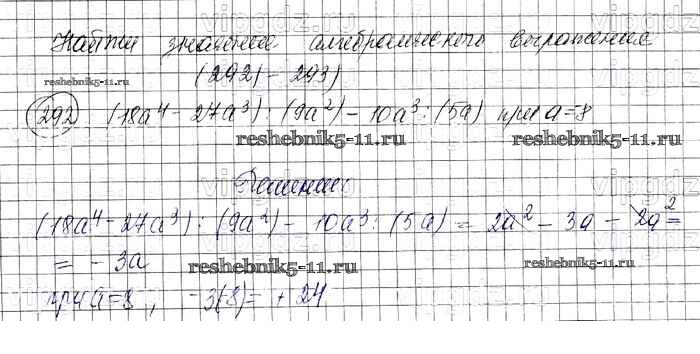 Найти значение алгебраического выражения
reshebnik5-11.ru
(292) - 293)
292 (18a⁴ - 27a³) : (9a²) - 10a³ : (5a) при a=8
reshebnik5-11.ru
Решение:
(18a⁴ - 27a³) : (9a²) - 10a³ : (5a) = 2a² - 3a - 2a² =
= - 3a
reshebnik5-11.ru
reshebnik5-11.ru
при a=8, -3(-8)= +24